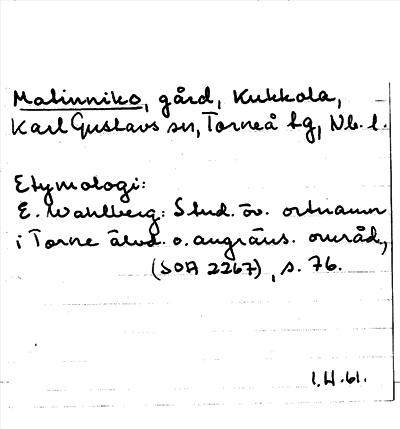 Matinniko, gård, Kukkola,
Karl Gustavs sn, Torneå tg, Nb. l.
Etymologi:
E. Wahlberg: Stud. öv. ortnamn
i Torne älvd. o. angräns. område,
(SOA 2267), s. 76.
I.H.61.